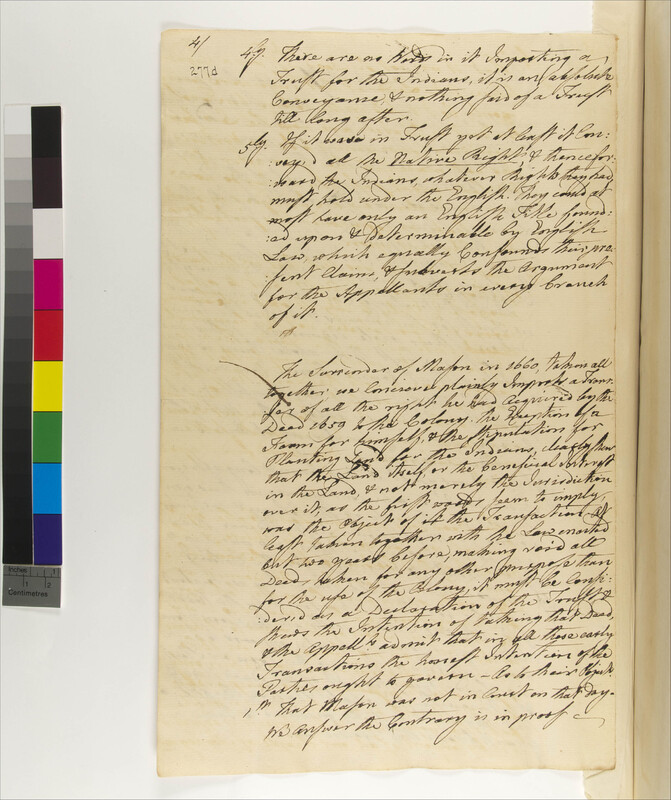 4/
277d
4ly. There are no Words in it Importing a
Trust for the Indians, it is an absolute
Conveyance, & nothing said of a Trust
till long after.
5ly. If it were in Trust yet at least it Con:
vey,d all the Native Right, & thencefor:
:ward the Indians, whatever Rights they had,
must hold under the English. They could at
most have only an English Title found:
:ed upon & determinable by English
Law, which equally Confounds their pre
:sent Claims, & subverts the Argument
for the Appellants in every branch
of it.
The Surrender of Mason in 1660, taken all
together; we Conceive plainly Imports a Tran:
:sfer of all the right he had Acquired by the
Deed 1659 to the Colony. the Exception of a
Farm for himself, & the Stipulation for
Planting Land for the Indians, clearly shew
that the Land itself, or the beneficial Interest
in the Land, & not merely the Jurisdiction
over it, as the first words seem to imply,
was the Object of it the Transaction. At
least taken together with the Law enacted
but two years before, making void all
Deeds taken for any other purpose than
for the use of the Colony, it must be Consi:
:dered as a Declaration of the Trust &
shews the Intention of taking that Deed,
& the Appell.ts admit that in all these early
Transactions the honest Intention of the
Parties ought to govern – As to their Object.s
1.st That Mason was not in Court on that Day –
We Answer the Contrary is in proof –
Inches
1
2
Centimetres